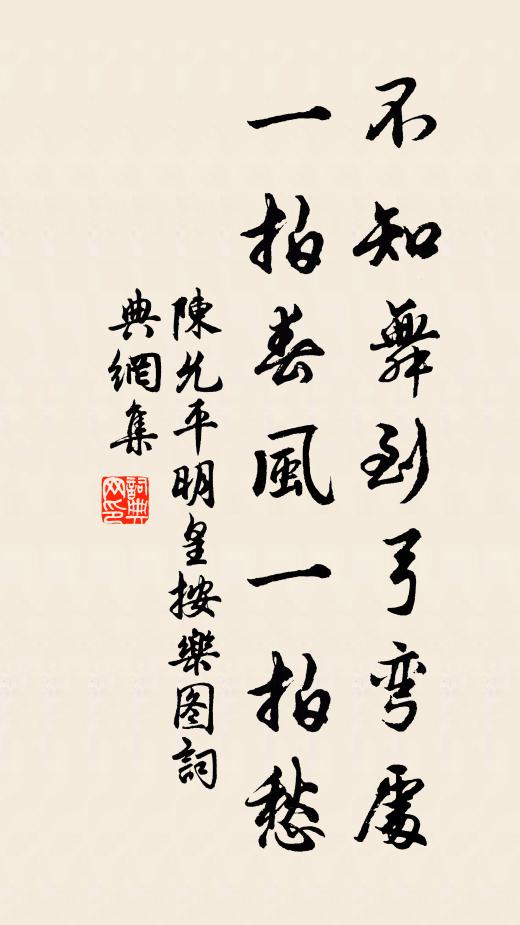 不知舞到弓弯處
一拍春風一拍愁
陳允平明皇按樂图詞
典網集
詞典网印